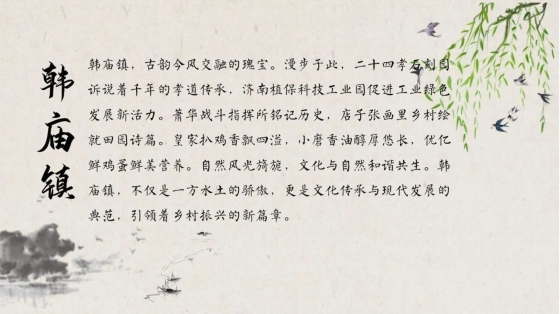 韩庙镇
韩庙镇，古韵今风交融的瑰宝。漫步于此，二十四孝石刻园
诉说着千年的孝道传承，济南植保科技工业园促进工业绿色
发展新活力。萧华战斗指挥所铭记历史，店子张画里乡村绘
就田园诗篇。皇家扒鸡香飘四溢，小磨香油醇厚悠长，优亿
鲜鸡蛋鲜美营养。自然风光旖旎，文化与自然和谐共生。韩
庙镇，不仅是一方水土的骄傲，更是文化传承与现代发展的
典范，引领着乡村振兴的新篇章。